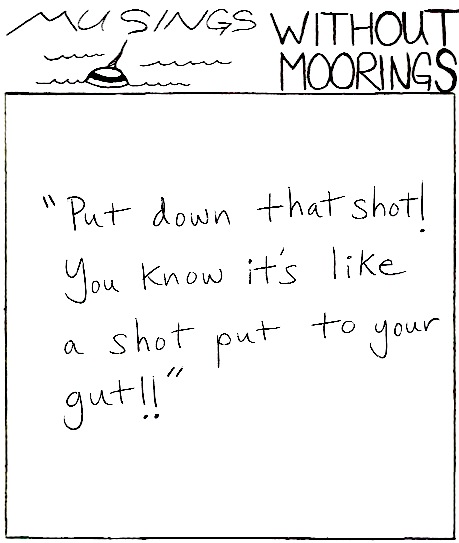 MUSINGS WITHOUT
MOORINGS
"Put down that shot!
You know it's like
a shot put to your
gut!!"